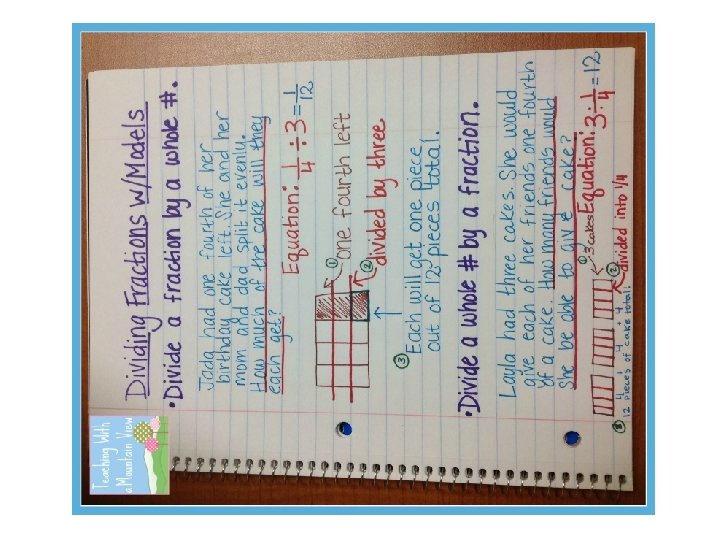 Dividing Fractions w/Models
•Divide a fraction by a whole #.
Jada had one fourth of her
birthday cake left. She and her
mom and dad split it evenly.
How much of the cake will they
each get?
Equation: 1/4 ÷ 3 = 1/12
① one fourth left
② divided by three
③
Each will get one piece
out of 12 pieces total.
•Divide a whole # by a fraction.
Layla had three cakes. She would
give each of her friends one fourth
of a cake. How many friends would
she be able to give cake?
① 3 cakes
Equation: 3 ÷ 1/4 = 12
② divided into 1/4
4 4 + 4
③ 12 pieces of cake total!
Teaching With
a Mountain View